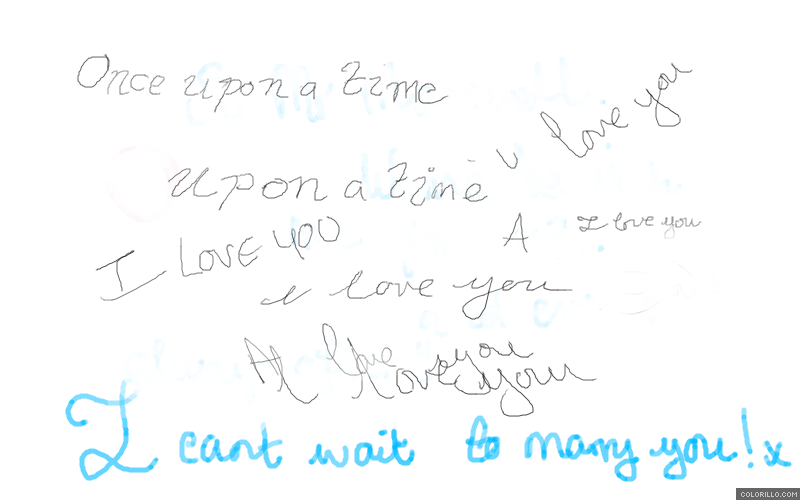 Once upon a time
i love you
upon a time
I love you
A
I LOVE YOU
i love you
love you
love you
I cant wait to marry you! x
COLORILLO.COM